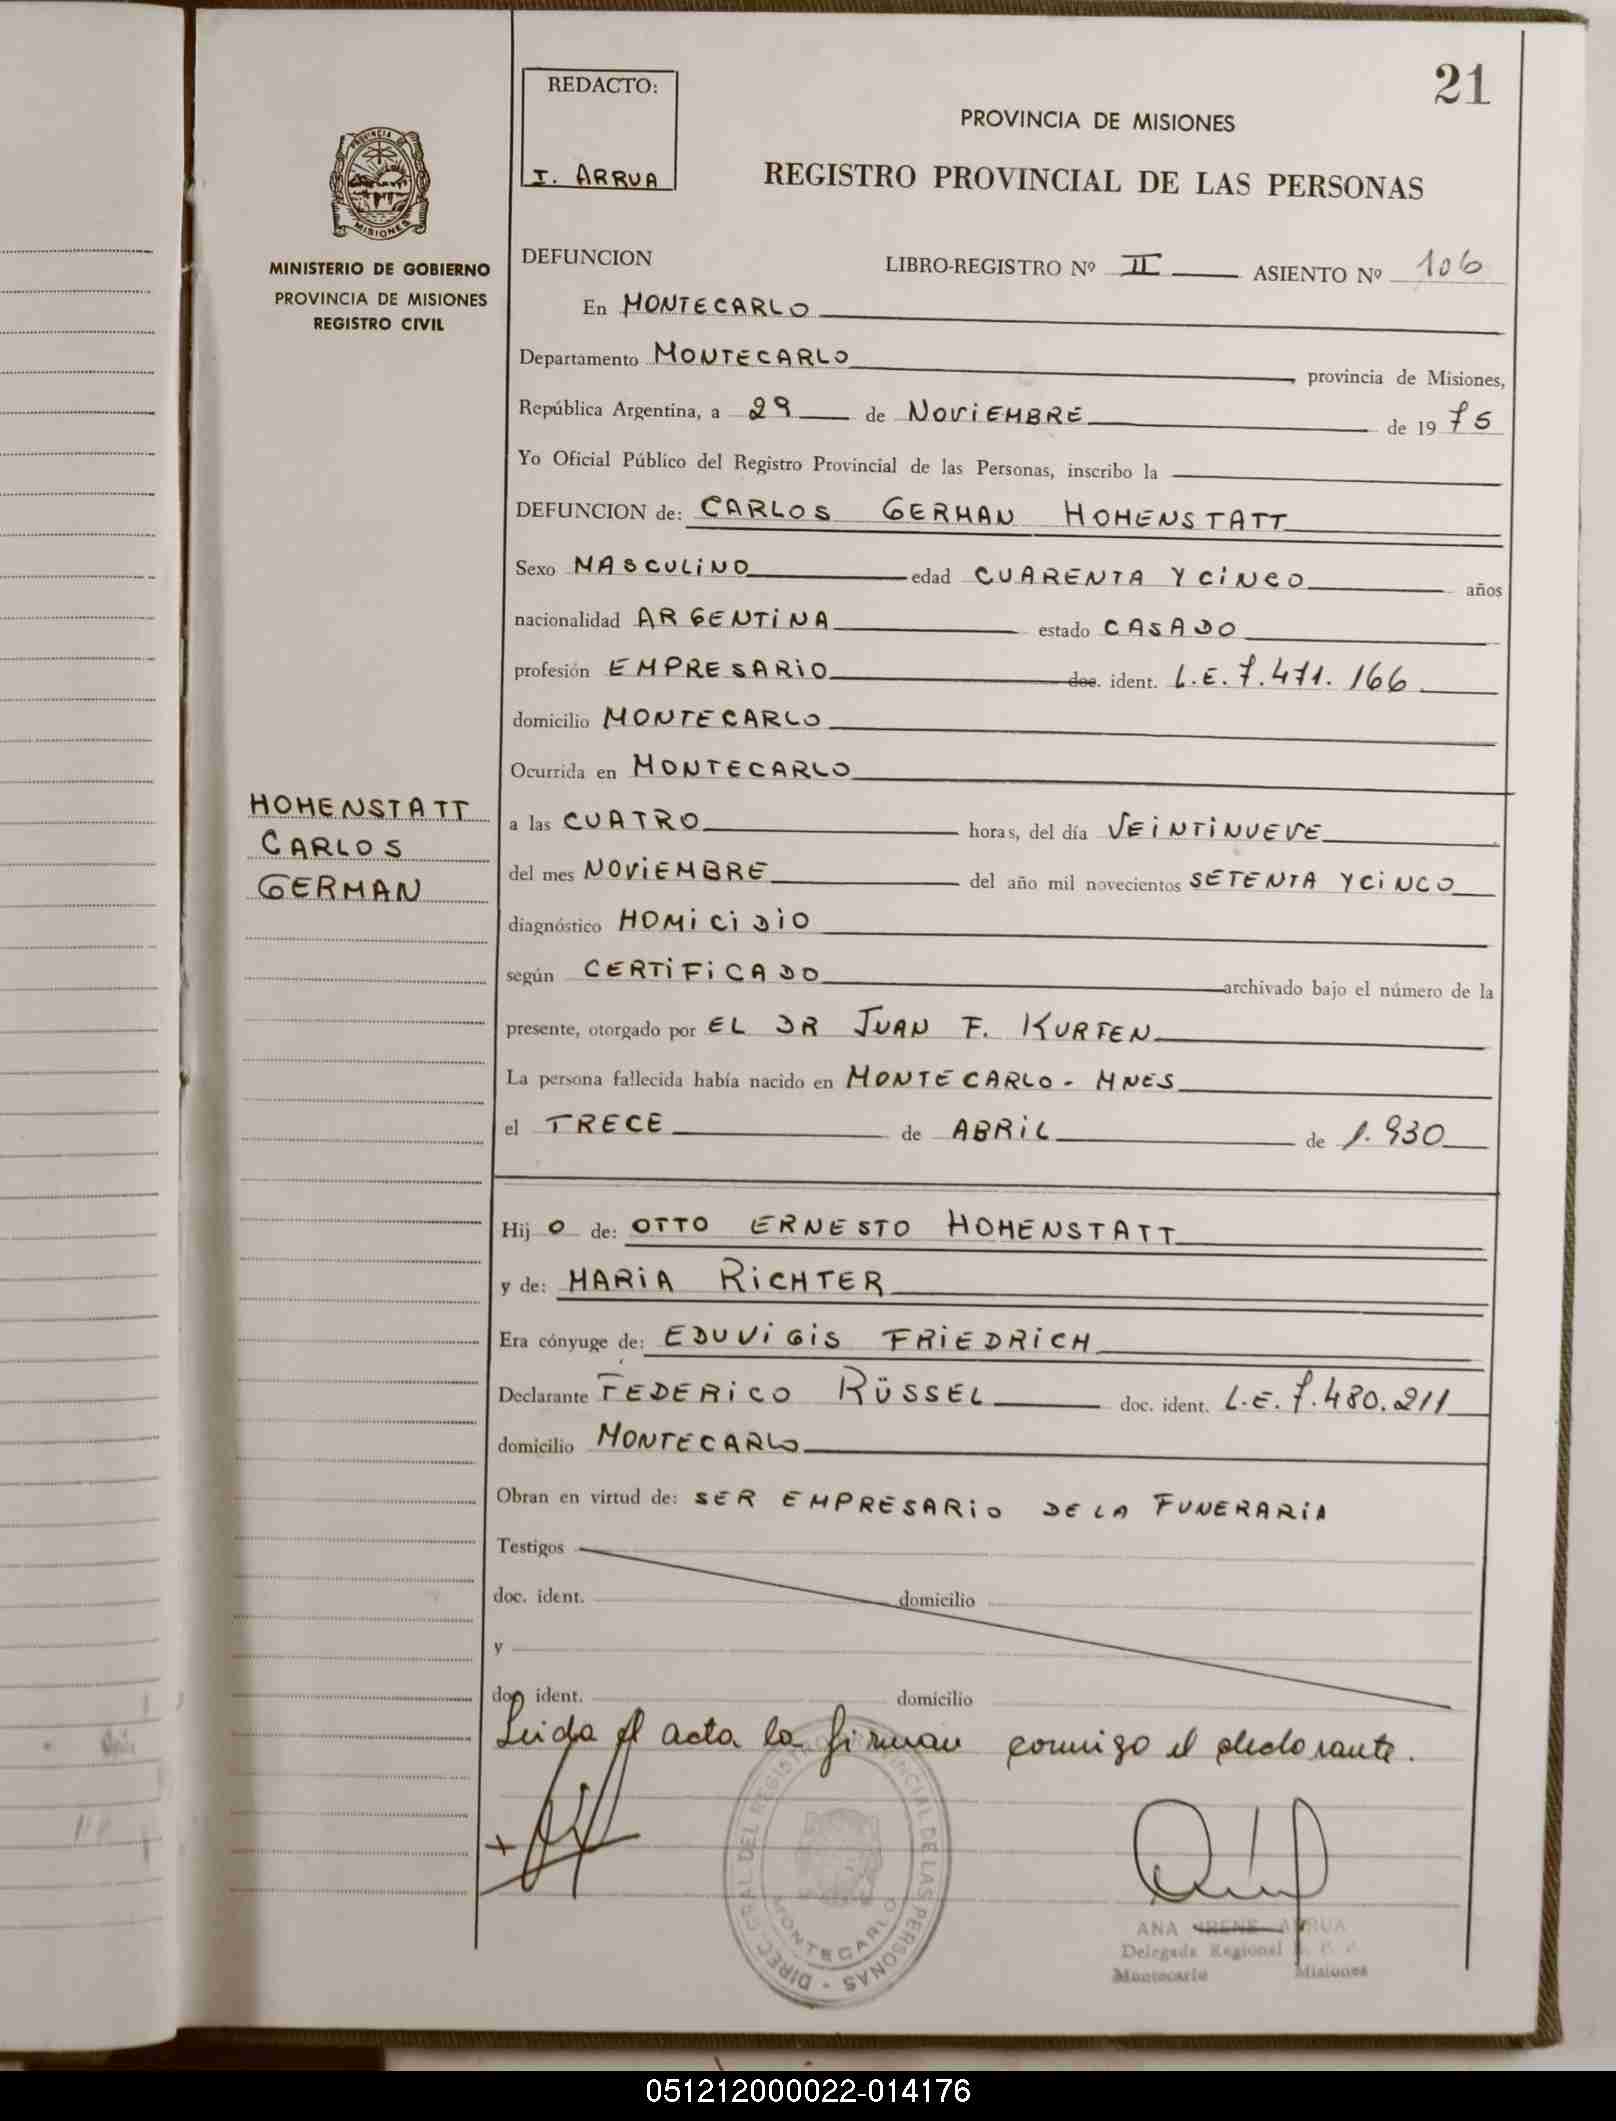 21
REDACTO:
I. ARRUA
PROVINCIA DE MISIONES
REGISTRO PROVINCIAL DE LAS PERSONAS
PROVINCIA DE
MISIONES
MINISTERIO DE GOBIERNO
PROVINCIA DE MISIONES
REGISTRO CIVIL
DEFUNCION
LIBRO-REGISTRO Nº II ASIENTO Nº 106
En MONTECARLO
Departamento MONTECARLO provincia de Misiones,
República Argentina, a 29 de NOViEMBRE de 1975
Yo Oficial Público del Registro Provincial de las Personas, inscribo la
DEFUNCION de: CARLOS GERMAN HOHENSTATT
Sexo MASCULiNO edad CUARENTA Y CiNCO años
nacionalidad ARGENTiNA estado CASADO
profesión EMPRESARiO doc. ident. L.E. 7.471.166
domicilio MONTECARLO
Ocurrida en MONTECARLO
HOHENSTATT
CARLOS
GERMAN
a las CUATRO horas, del día VEiNTiNUEVE
del mes NOViEMBRE del año mil novecientos SETENTA Y CiNCO
diagnóstico HOMiCiDiO
según CERTiFiCADO archivado bajo el número de la
presente, otorgado por EL DR JUAN F. KURTEN
La persona fallecida había nacido en MONTECARLO - MNES
el TRECE de ABRiL de 1.930
Hijo de: OTTO ERNESTO HOHENSTATT
y de: MARiA RiCHTER
Era cónyuge de: EDUViGiS FRiEDRiCH
Declarante FEDERiCO RÜSSEL doc. ident. L.E. 7.480.211
domicilio MONTECARLO
Obran en virtud de: SER EMPRESARiO DE LA FUNERARiA
Testigos
doc. ident. domicilio
y
doc. ident. domicilio
Leida el acta la firman conmigo el declarante.
DIREC. GRAL DEL REGISTRO PROVINCIAL DE LAS PERSONAS
MONTECARLO
ANA IRENE ARRUA
Delegada Regional R. P. P.
Montecarlo Misiones
051212000022-014176